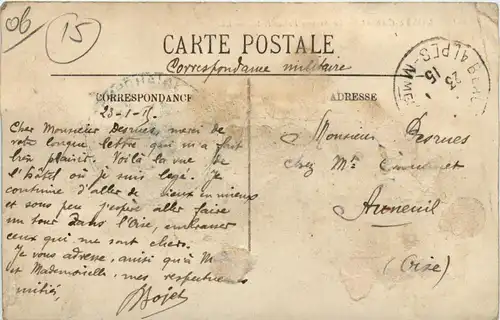 06
15
CARTE POSTALE
Correspondance militaire
CORRESPONDANCE
ADRESSE
23-1-15.
Cher Monsieur Desrues, merci de
votre longue lettre qui m'a fait
bien plaisir. Voilà la vue de
l'hôtel où je suis logé. Je
continue d'aller de mieux en mieux
et sous peu j'espère aller faire
un tour dans l'Oise, embrasser
ceux qui me sont chers.
Je vous adresse, ainsi qu'à M
et Mademoiselle, mes respectueuses
amitiés,
Monsieur Desrues
chez Mr
Auneuil
(Oise)
23
15
ALPES-MMES